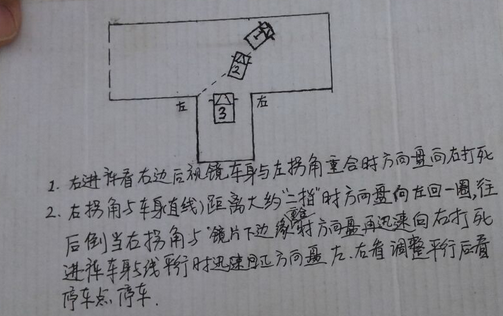 1
2
左 右
3
1. 右进库看右边后视镜车身与左拐角重合时方向盘向右打死
2. 右拐角与车身(直线)距离大约"二拍"时方向盘向左回一圈,往
后倒当右拐角与"镜片下边缘"时方向盘再迅速向右打死
进库车身与线平行时迅速回正方向盘左.右看调整平行后看
停车点,停车.